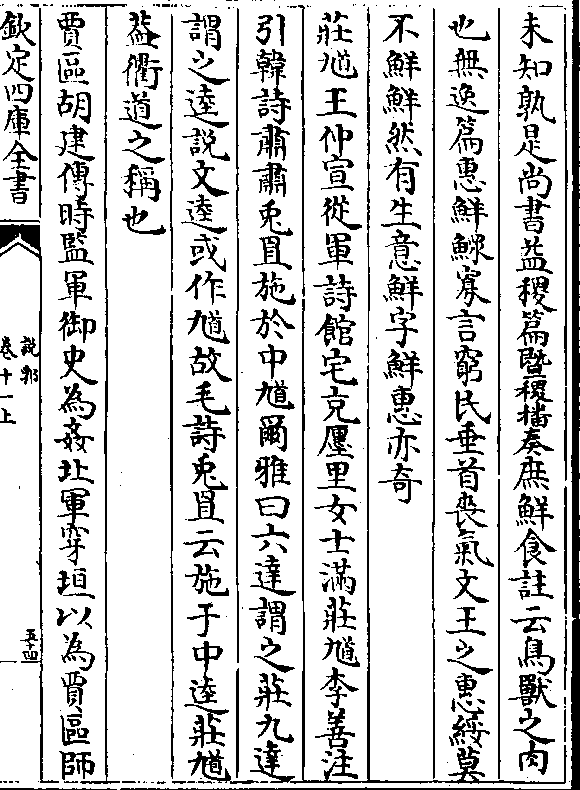 未知孰是尚書益稷篇暨稷播奏庶鮮食註云鳥獸之肉
也無逸篇惠鮮鰥寡言窮民垂首喪氣文王之惠綏莫
不鮮鮮然有生意鮮字鮮惠亦奇
莊馗王仲宣從軍詩館宅克㕓里女士滿莊馗李善注
引韓詩肅肅兎罝施於中馗爾雅曰六達謂之莊九達
謂之逵説文逵或作馗故毛詩兎罝云施于中逵莊馗
蓋衢道之稱也
賈區胡建傳時監軍御史為姦北軍穿垣以為賈區師
欽定四庫全書
説郛
卷十一上
五十四